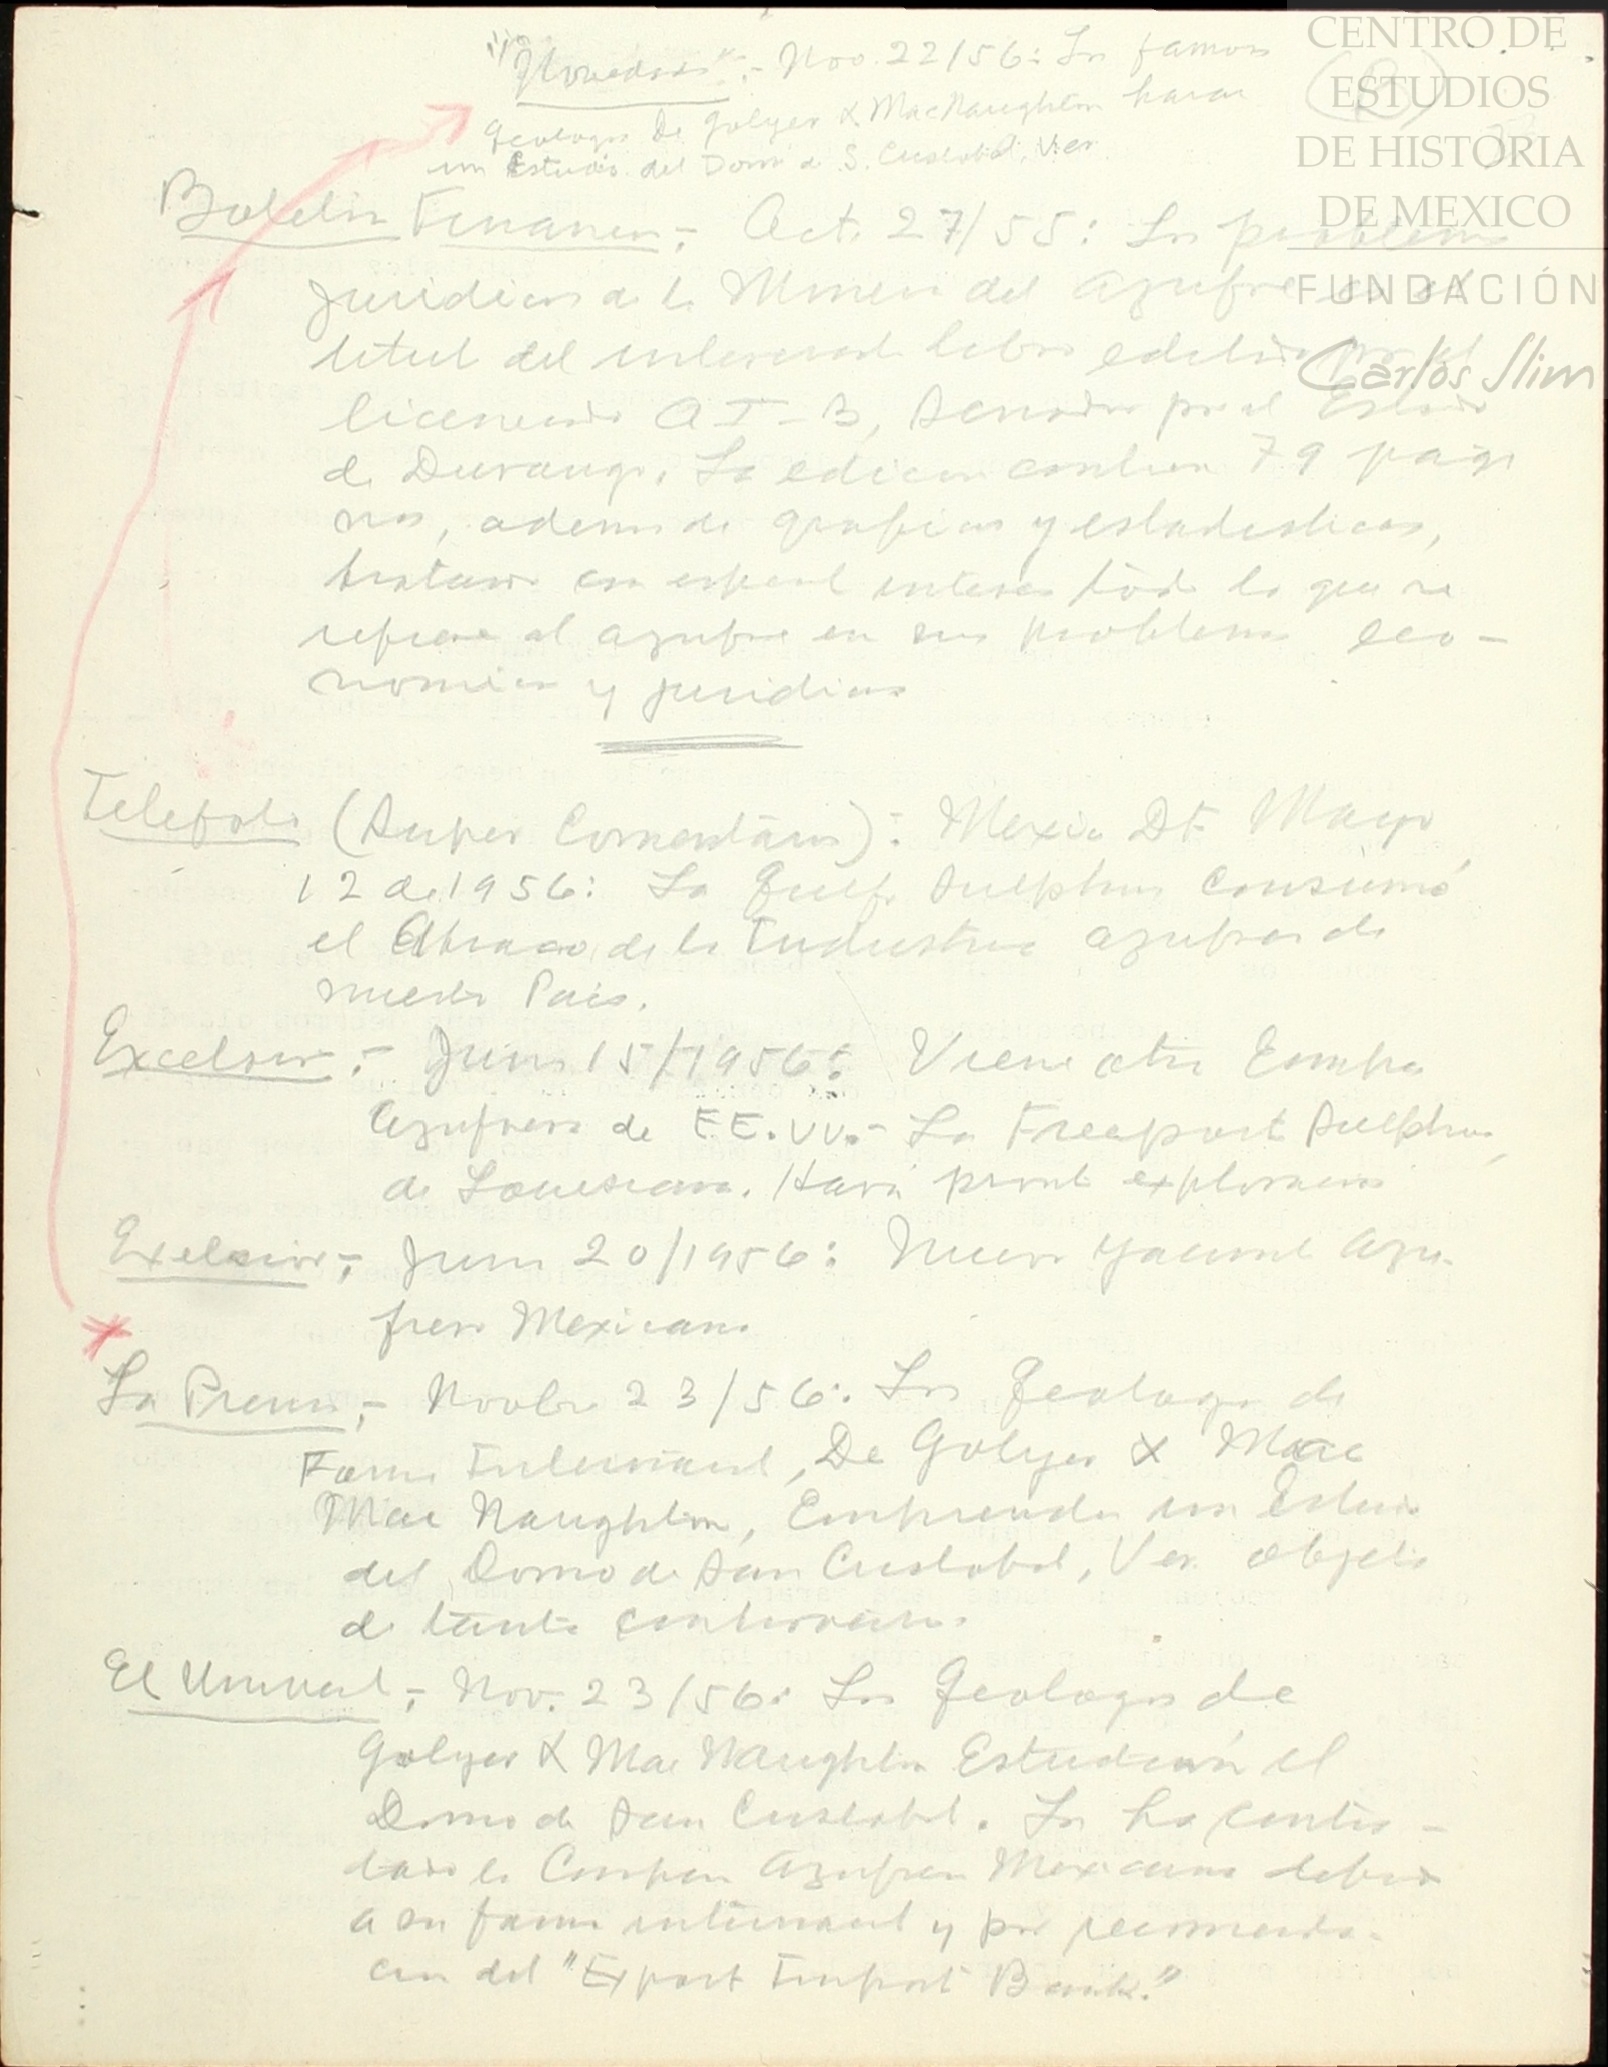 "Novedades".- Nov. 22/56: Los famosos
Geologos De Golyer & MacNaughton haran
un Estudio del Domo de S. Cristobal, Ver
Boletin Financiero,- Oct. 27/55: Los problemas
Juridicos de la Mineria del Azufre es el
titulo del interesante libro editado por el
licenciado A I-B, Senador por el Estado
de Durango. La edicion contiene 79 pagi
nas, ademas de graficas y estadisticas,
tratando con especial interes todo lo que se
refiere al azufre en sus problemas eco-
nomicos y juridicos
(Super Comentarios): Mexico DF. Mayo
12 de 1956: La Gulf Sulphur Consumó
el Abrazo de la Industria azufrera de
nuestro Pais.
Excelsior.- Junio 15/1956: Viene otra Empresa
Azufrera de EE.UU.- La Freeport Sulphur,
de Louisiana. Hará pronto exploraciones
Exelsior,- Junio 20/1956: Nuevo Yacimiento Azu-
frero Mexicano
La Prensa,- Novbre 23/56: Los Geologos de
Fama Internacional, De Golyer & Mac
Mac Naughton, Emprenden un Estudio
del Domo de San Cristobal, Ver. objeto
de tanta controversia.
El Universal,- Nov. 23/56: Los Geologos de
Golyer & Mac Naughton Estudiarán el
Domo de San Cristobal. Los ha contra-
tado la Compañia Azufrera Mexicana debido
a su fama internacional y por recomenda-
cion del "Export Import Bank."
CENTRO DE
ESTUDIOS
DE HISTORIA
DE MEXICO
FUNDACIÓN
Carlos Slim